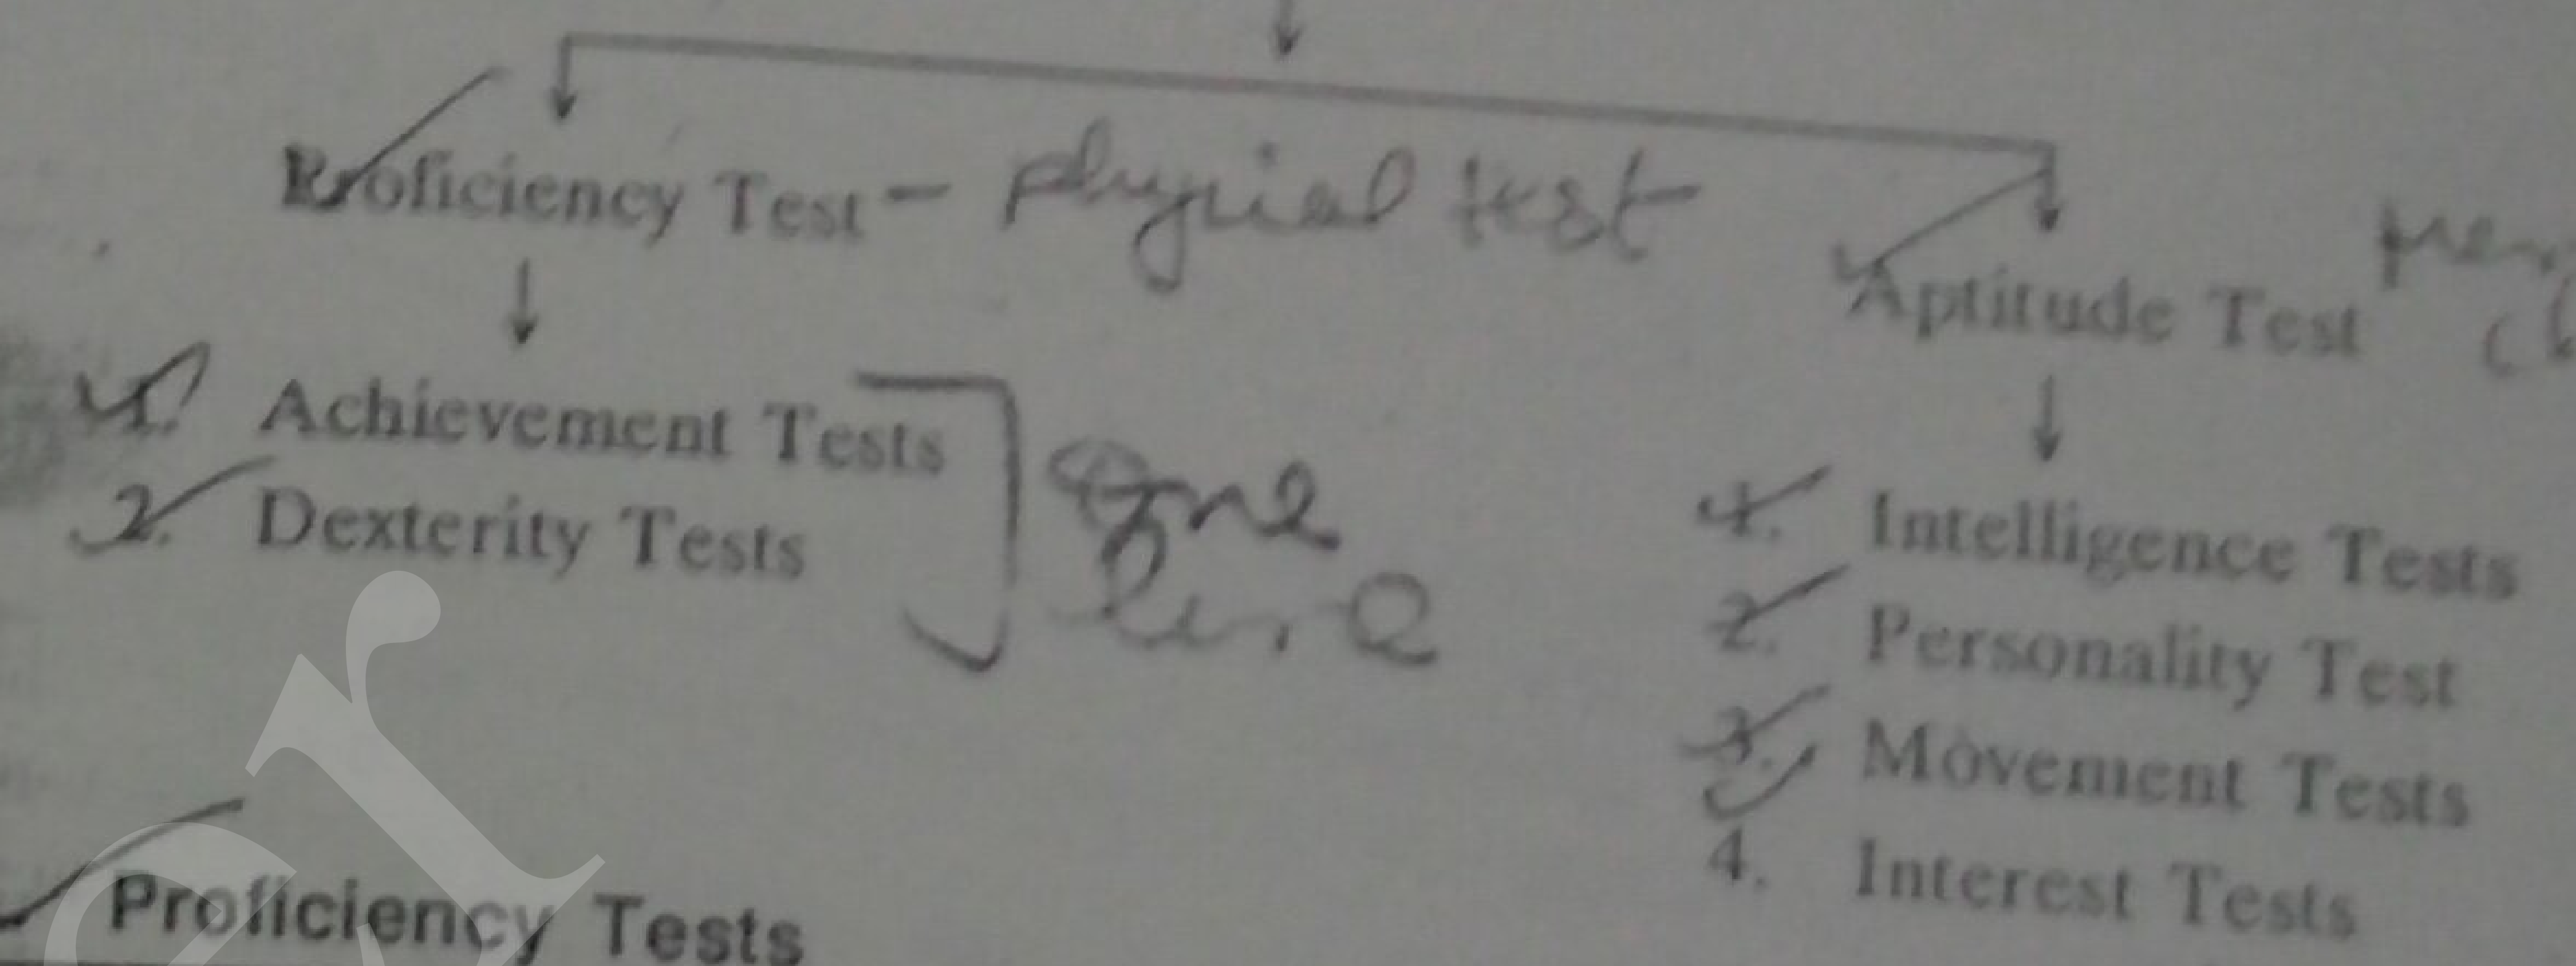 Proficiency Test - Physical test
Aptitude Test
1. Achievement Tests
2. Dexterity Tests
One
line
1. Intelligence Tests
2. Personality Test
3. Movement Tests
4. Interest Tests
Proficiency Tests